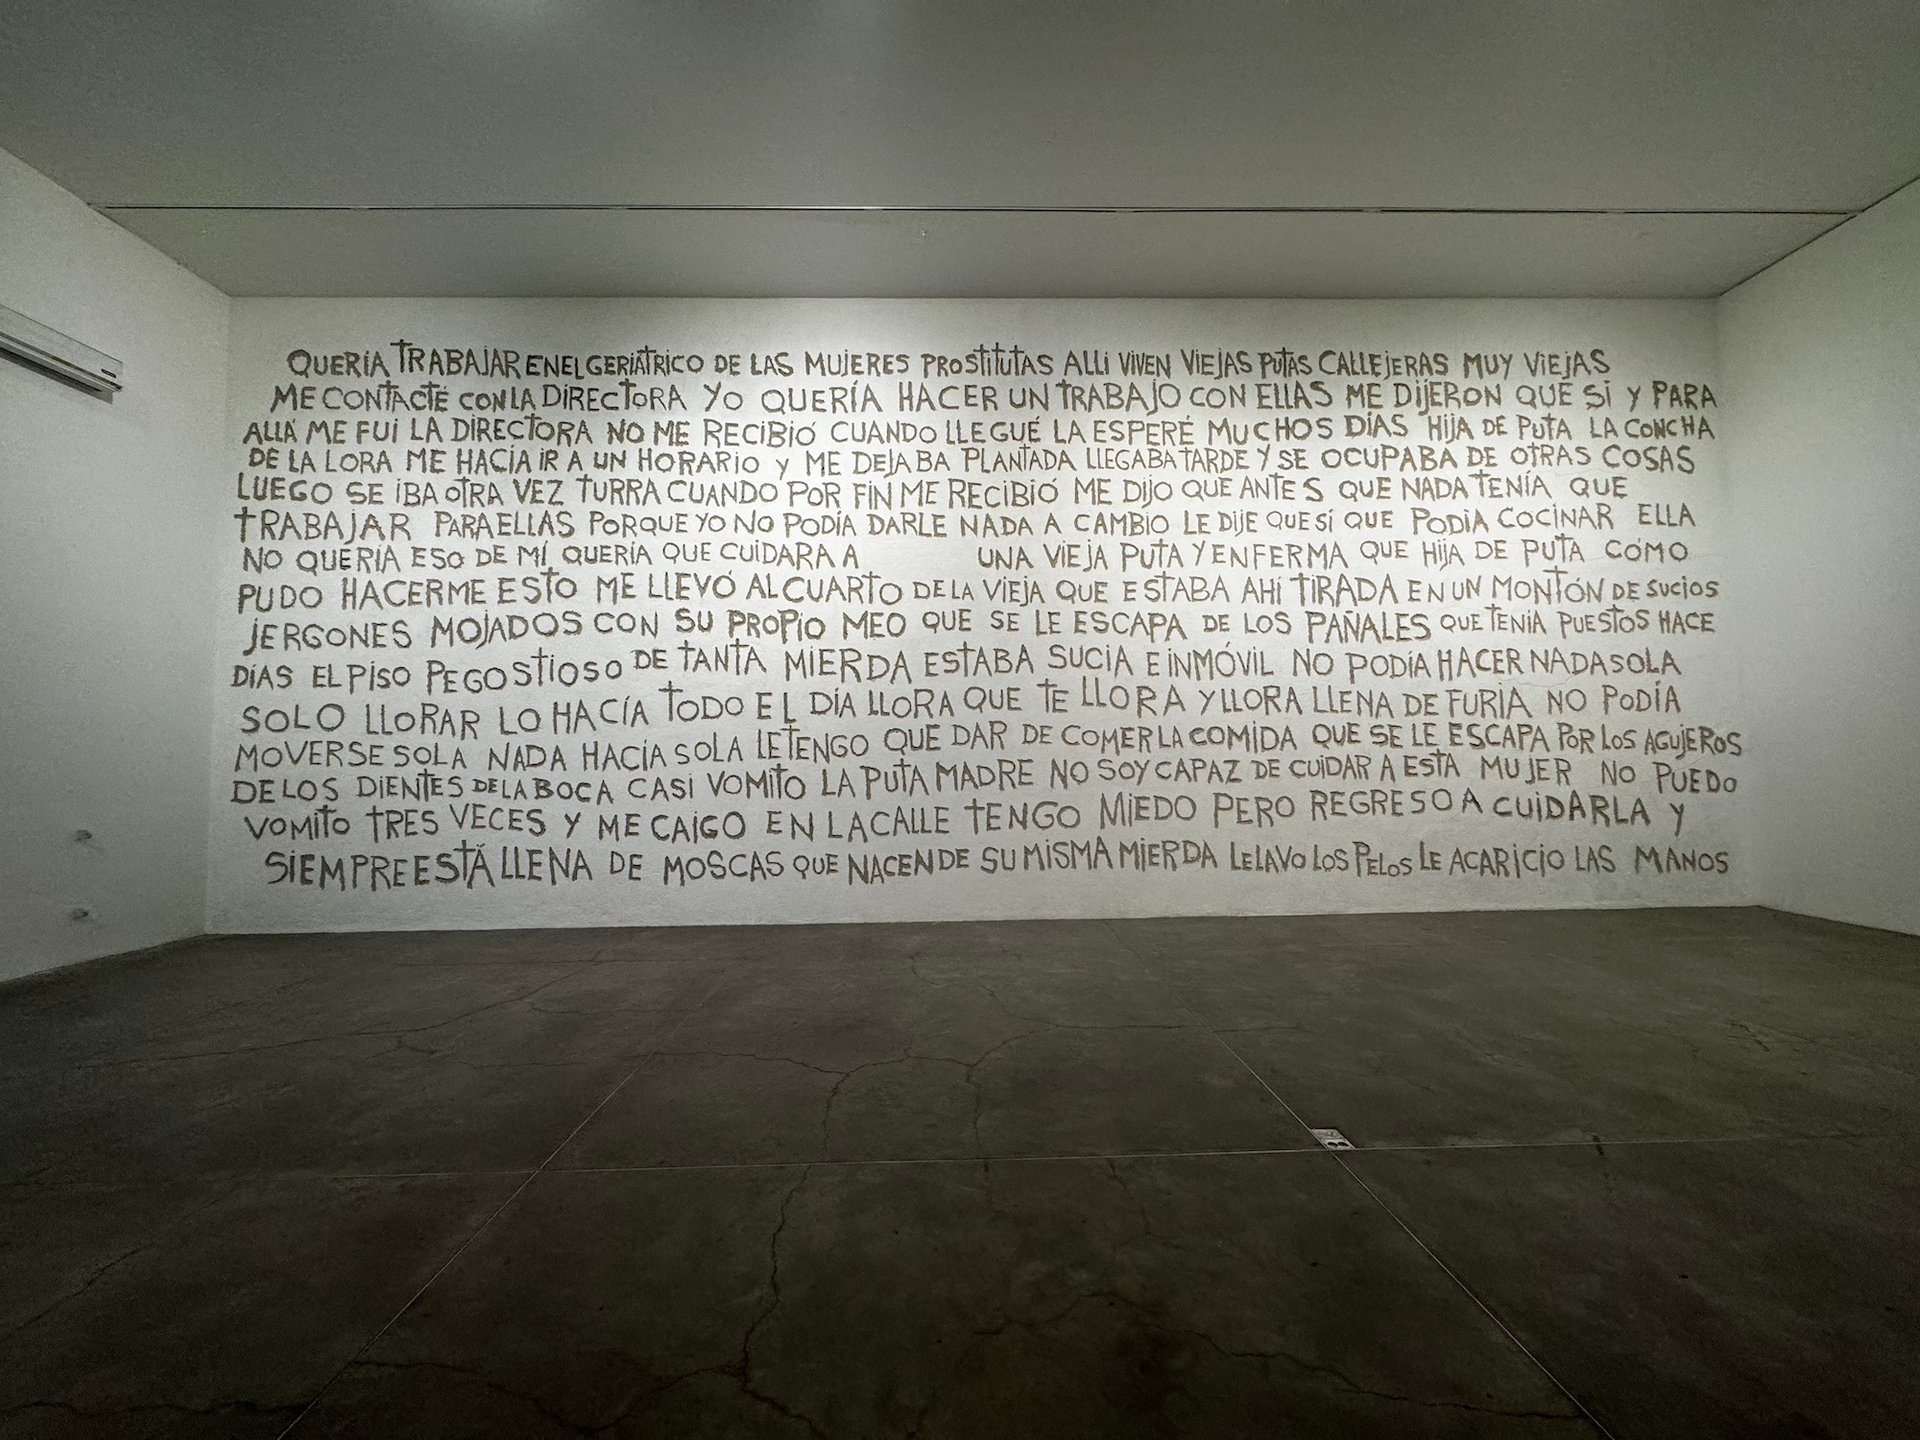 QUERÍA TRABAJAR EN EL GERIÁTRICO DE LAS MUJERES PROSTITUTAS ALLI VIVEN VIEJAS PUTAS CALLEJERAS MUY VIEJAS
ME CONTACTÉ CON LA DIRECTORA YO QUERÍA HACER UN TRABAJO CON ELLAS ME DIJERON QUE SI Y PARA
ALLÁ ME FUI LA DIRECTORA NO ME RECIBIÓ CUANDO LLEGUÉ LA ESPERÉ MUCHOS DÍAS HIJA DE PUTA LA CONCHA
DE LA LORA ME HACÍA IR A UN HORARIO Y ME DEJABA PLANTADA LLEGABA TARDE Y SE OCUPABA DE OTRAS COSAS
LUEGO SE IBA OTRA VEZ TURRA CUANDO POR FIN ME RECIBIÓ ME DIJO QUE ANTES QUE NADA TENÍA QUE
TRABAJAR PARA ELLAS PORQUE YO NO PODÍA DARLE NADA A CAMBIO LE DIJE QUE SÍ QUE PODÍA COCINAR ELLA
NO QUERÍA ESO DE MÍ QUERÍA QUE CUIDARA A UNA VIEJA PUTA Y ENFERMA QUE HIJA DE PUTA CÓMO
PUDO HACERME ESTO ME LLEVÓ AL CUARTO DE LA VIEJA QUE ESTABA AHÍ TIRADA EN UN MONTÓN DE SUCIOS
JERGONES MOJADOS CON SU PROPIO MEO QUE SE LE ESCAPA DE LOS PAÑALES QUE TENÍA PUESTOS HACE
DÍAS EL PISO PEGOSTIOSO DE TANTA MIERDA ESTABA SUCIA E INMÓVIL NO PODÍA HACER NADA SOLA
SOLO LLORAR LO HACÍA TODO EL DÍA LLORA QUE TE LLORA Y LLORA LLENA DE FURIA NO PODÍA
MOVERSE SOLA NADA HACÍA SOLA LE TENGO QUE DAR DE COMER LA COMIDA QUE SE LE ESCAPA POR LOS AGUJEROS
DE LOS DIENTES DE LA BOCA CASI VOMITO LA PUTA MADRE NO SOY CAPAZ DE CUIDAR A ESTA MUJER NO PUEDO
VOMITO TRES VECES Y ME CAIGO EN LA CALLE TENGO MIEDO PERO REGRESO A CUIDARLA Y
SIEMPRE ESTÁ LLENA DE MOSCAS QUE NACEN DE SU MISMA MIERDA LE LAVO LOS PELOS LE ACARICIO LAS MANOS